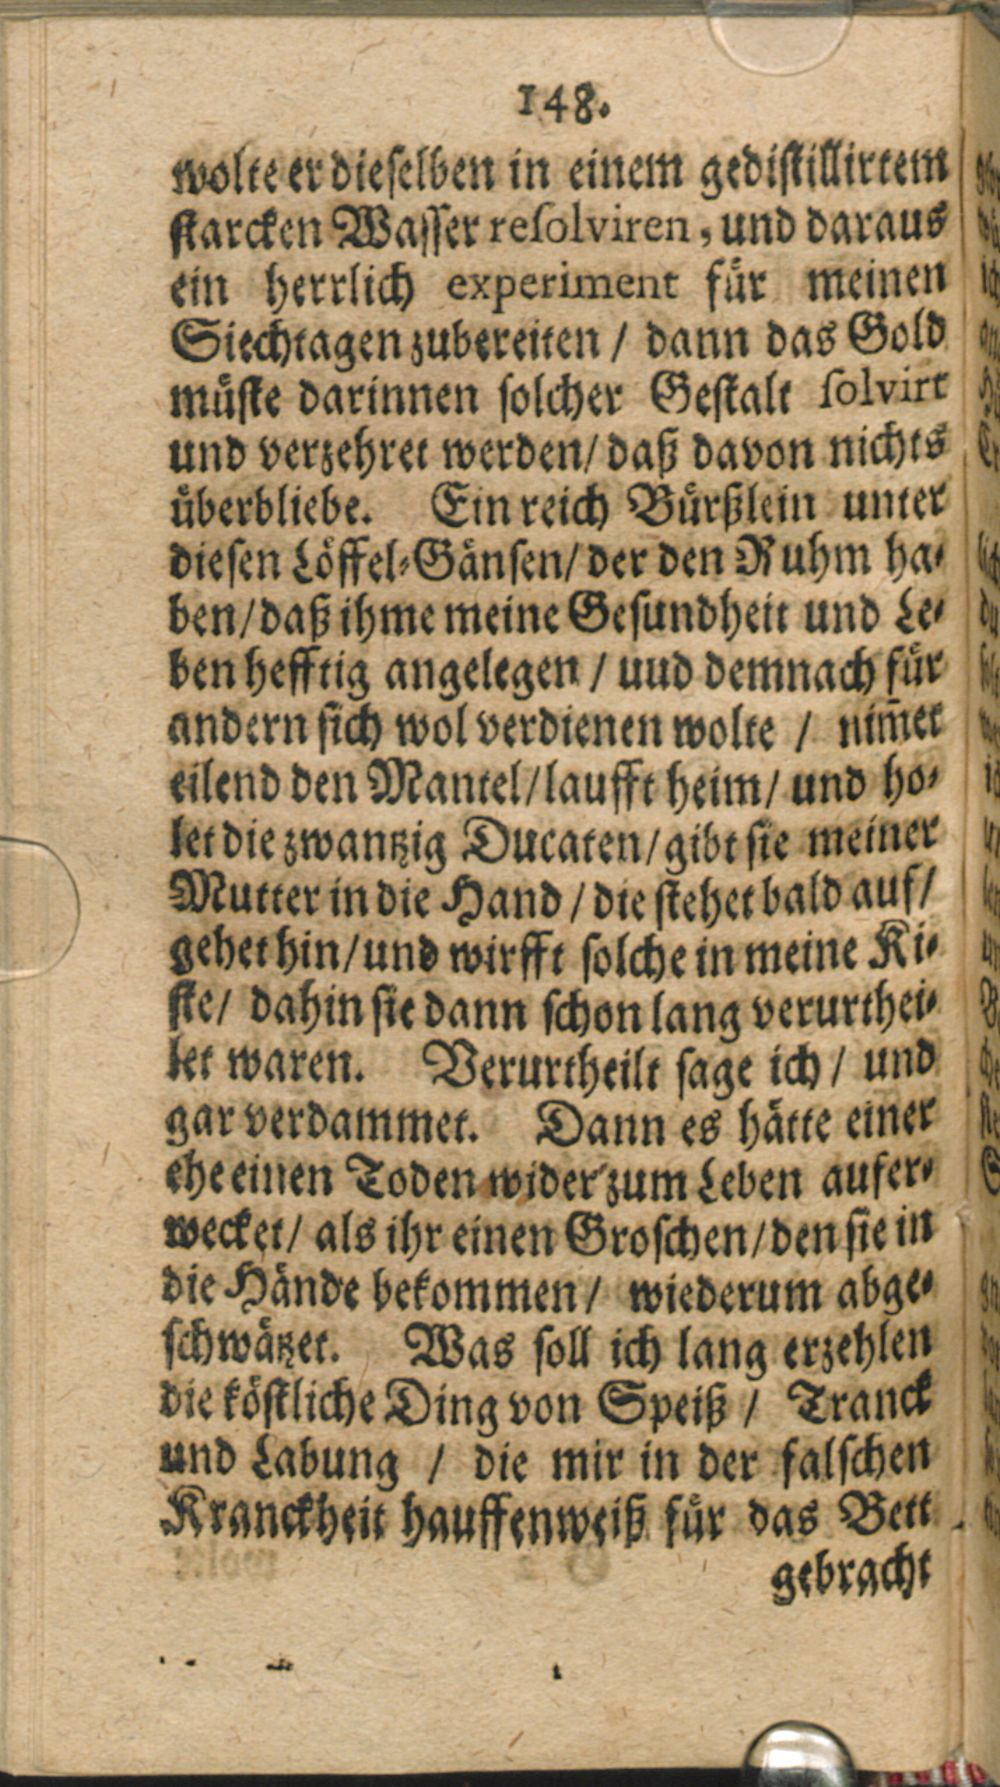 148.
wolte er dieselben in einem gedistillirtem
starcken Wasser resolviren, und daraus
ein herrlich experiment für meinen
Siechtagen zubereiten / dann das Gold
müste darinnen solcher Gestalt solvirt
und verzehret werden / daß davon nichts
überbliebe. Ein reich Bürßlein unter
diesen Löffel-Gänsen / der den Ruhm ha-
ben / daß ihme meine Gesundheit und Le-
ben hefftig angelegen / uud demnach für
andern sich wol verdienen wolte / nim̃et
eilend den Mantel / laufft heim / und ho-
let die zwantzig Ducaten / gibt sie meiner
Mutter in die Hand / die stehet bald auf /
gehet hin / und wirfft solche in meine Ki-
ste / dahin sie dann schon lang verurthei-
let waren. Verurtheilt sage ich / und
gar verdammet. Dann es hätte einer
ehe einen Toden wider zum Leben aufer-
wecket / als ihr einen Groschen / den sie in
die Hände bekommen / wiederum abge-
schwätzet. Was soll ich lang erzehlen
die köstliche Ding von Speiß / Tranck
und Labung / die mir in der falschen
Kranckheit hauffenweiß für das Bett
gebracht